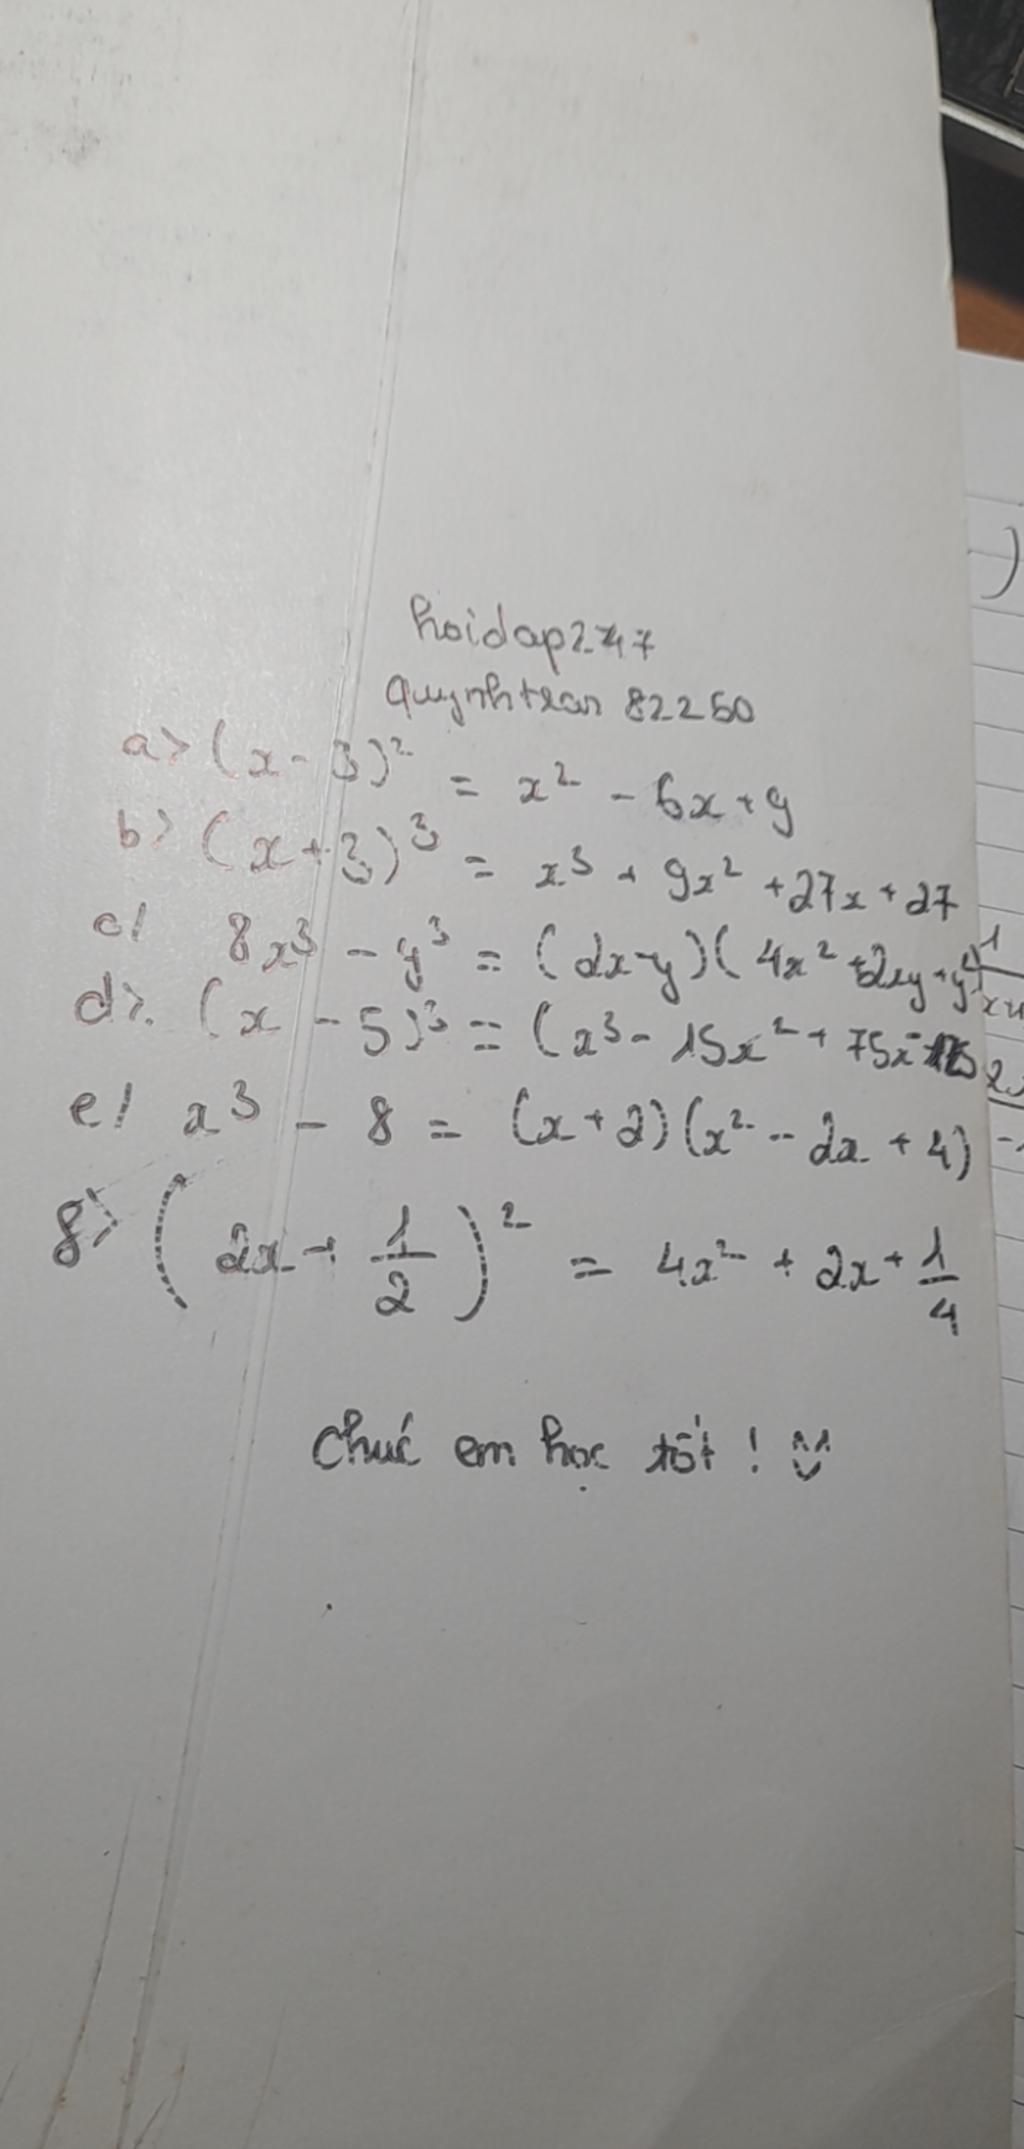 hoidap247
quynhtran 82250
a> (x - 3)² = x² - 6x + 9
b> (x + 3)³ = x³ + 9x² + 27x + 27
c/ 8x³ - y³ = (2x-y)(4x² + 2xy + y²)
d>. (x - 5)³ = (x³ - 15x² + 75x - 125
e/ x³ - 8 = (x + 2)(x² - 2x + 4)
g> (2x + 1/2)² = 4x² + 2x + 1/4
Chúc em học tốt !